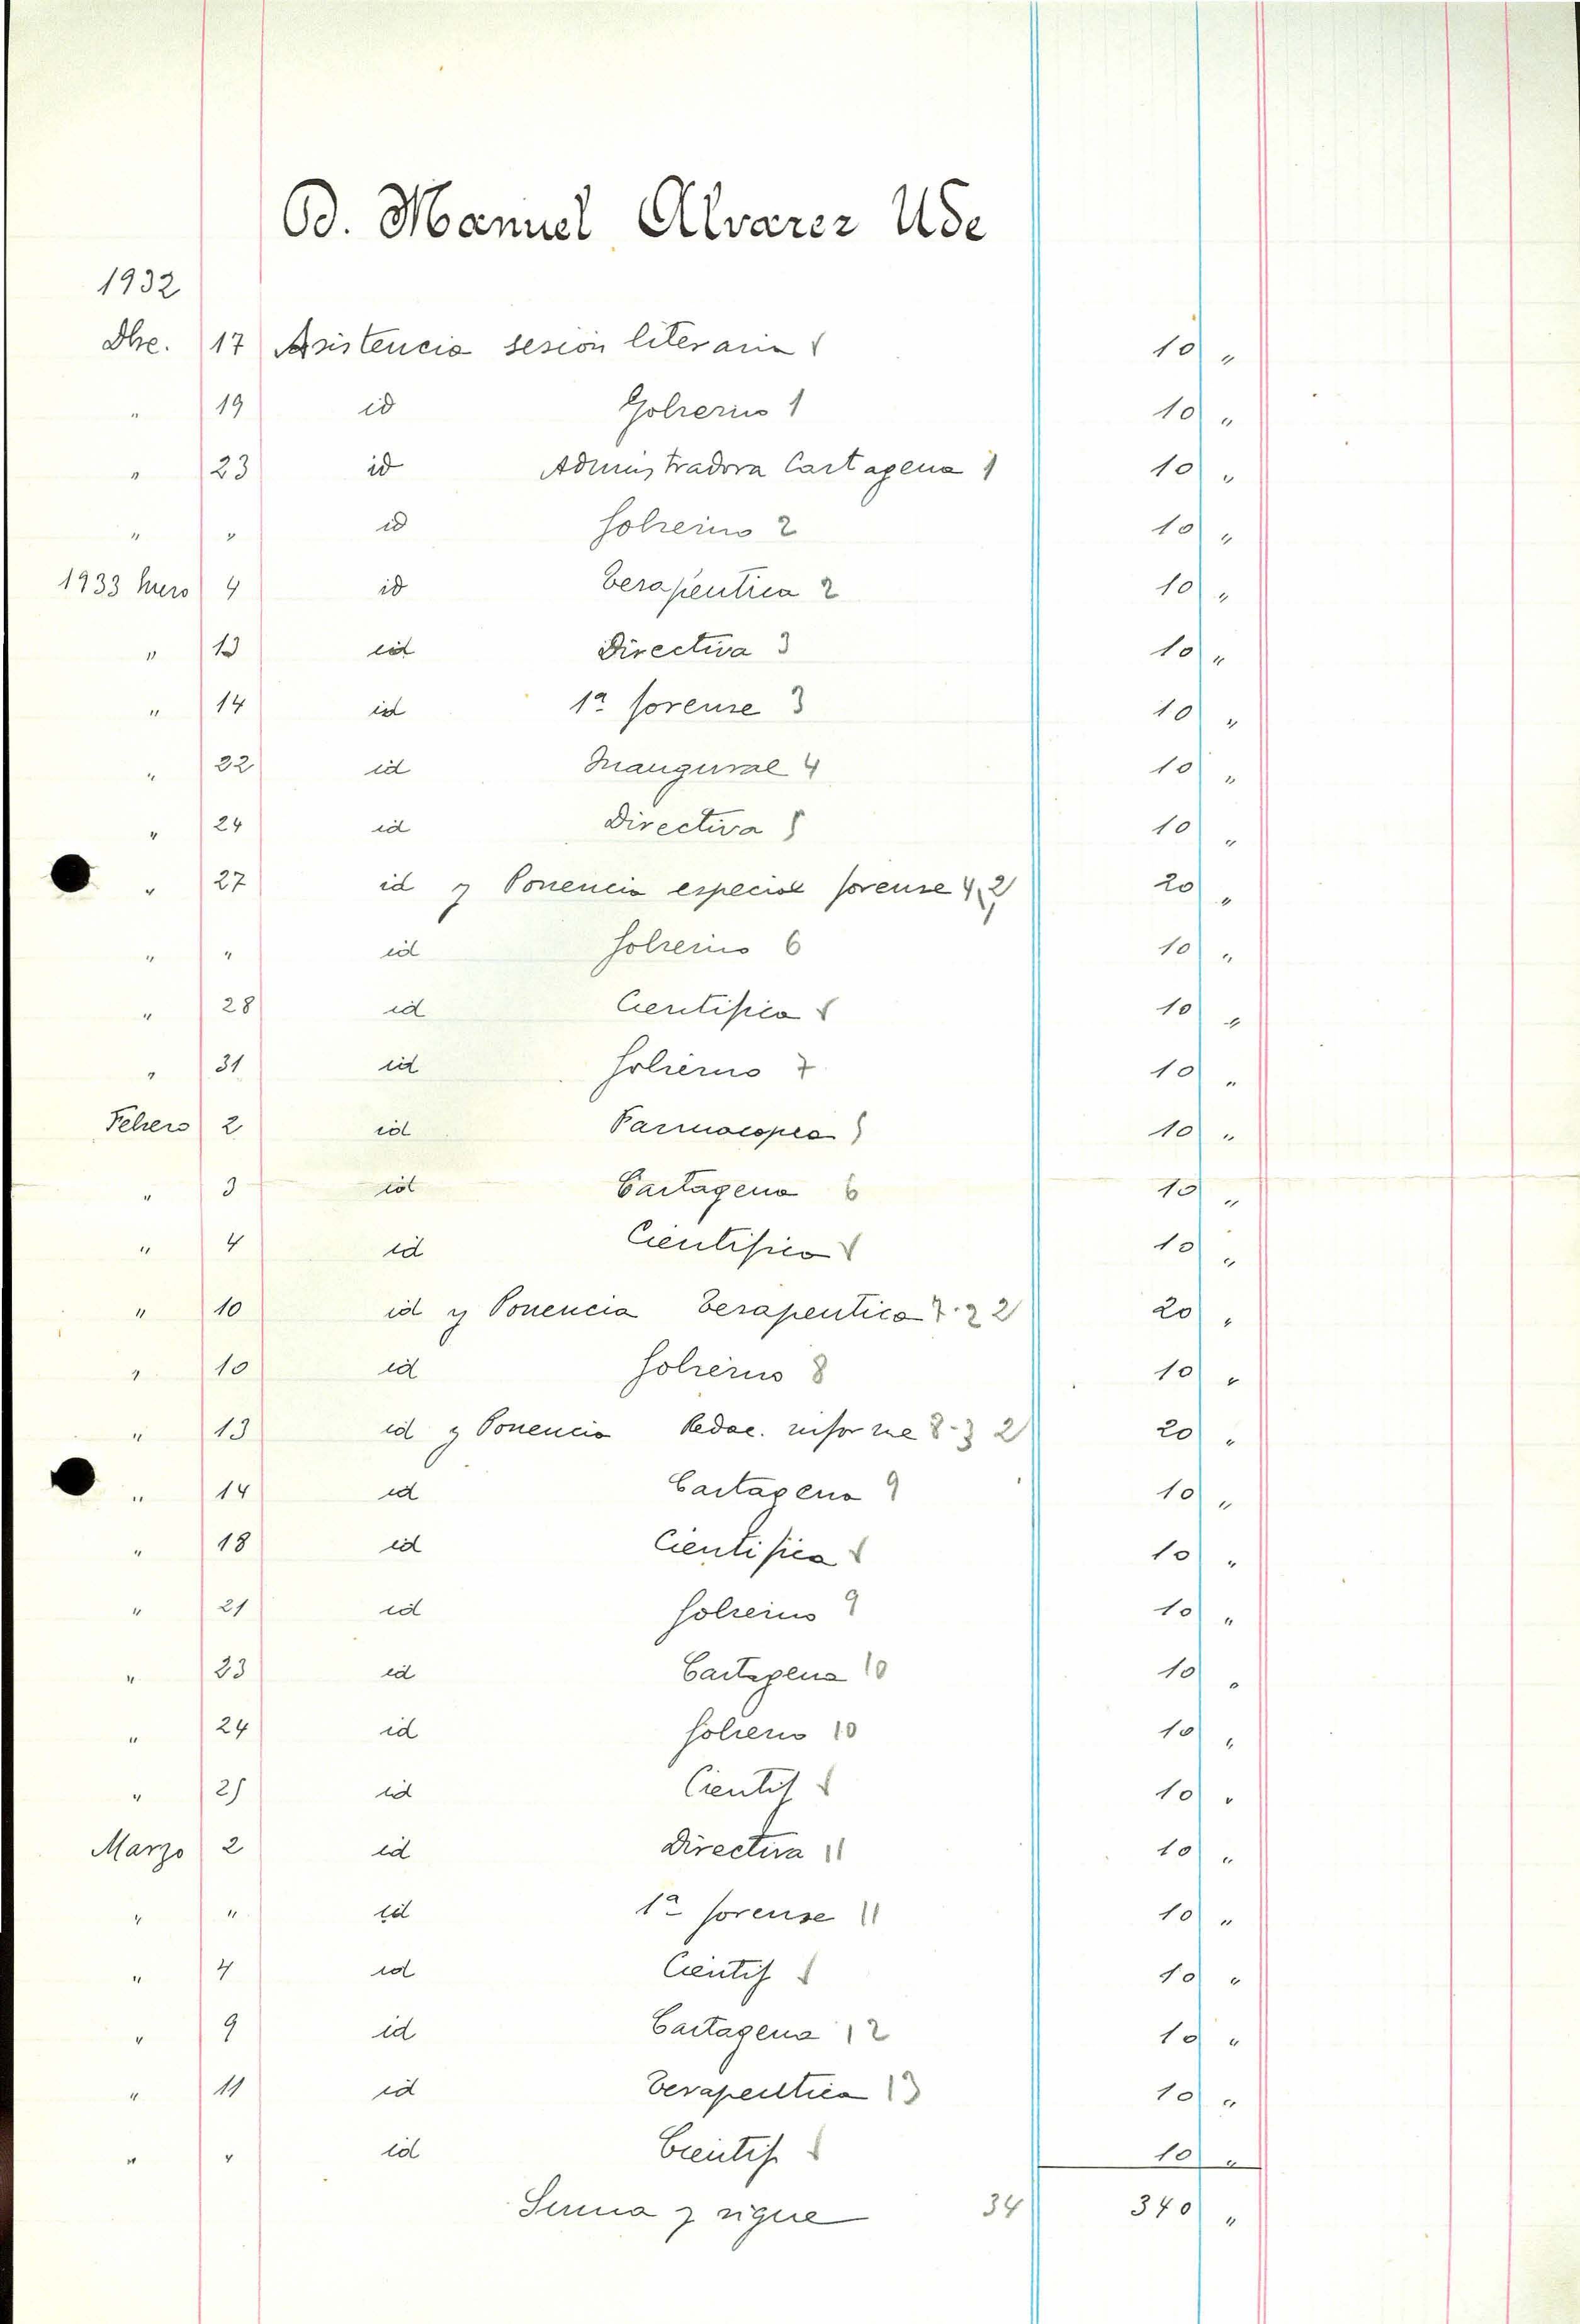 D. Manuel Alvarez Ude
1932
Dbre. 17 Asistencia sesión literaria 10 "
" 19 id Gobierno 1 10 "
" 23 id Administradora Cartagena 1 10 "
" " id Gobierno 2 10 "
1933 Enero 4 id Terapeutica 2 10 "
" 13 id Directiva 3 10 "
" 14 id 1ª forense 3 10 "
" 22 id Inaugural 4 10 "
" 24 id Directiva 5 10 "
" 27 id y Ponencia especial forense 4 2 20 "
" " id Gobierno 6 10 "
" 28 id Cientifica 10 "
" 31 id Gobierno 7 10 "
Febero 2 id Farmacopea 5 10 "
" 3 id Cartagena 6 10 "
" 4 id Cientifica 10 "
" 10 id y Ponencia Terapeutica 7-2 2 20 "
" 10 id Gobierno 8 10 "
" 13 id y Ponencia Redac. informe 8-3 2 20 "
" 14 id Cartagena 9 10 "
" 18 id Cientifica 10 "
" 21 id Gobierno 9 10 "
" 23 id Cartagena 10 10 "
" 24 id Gobierno 10 10 "
" 25 id Cientif 10 "
Marzo 2 id Directiva 11 10 "
" " id 1ª forense 11 10 "
" 4 id Cientif 10 "
" 9 id Cartagena 12 10 "
" 11 id Terapeutica 13 10 "
" " id Cientif. 10 "
Suma y sigue 34 340 "